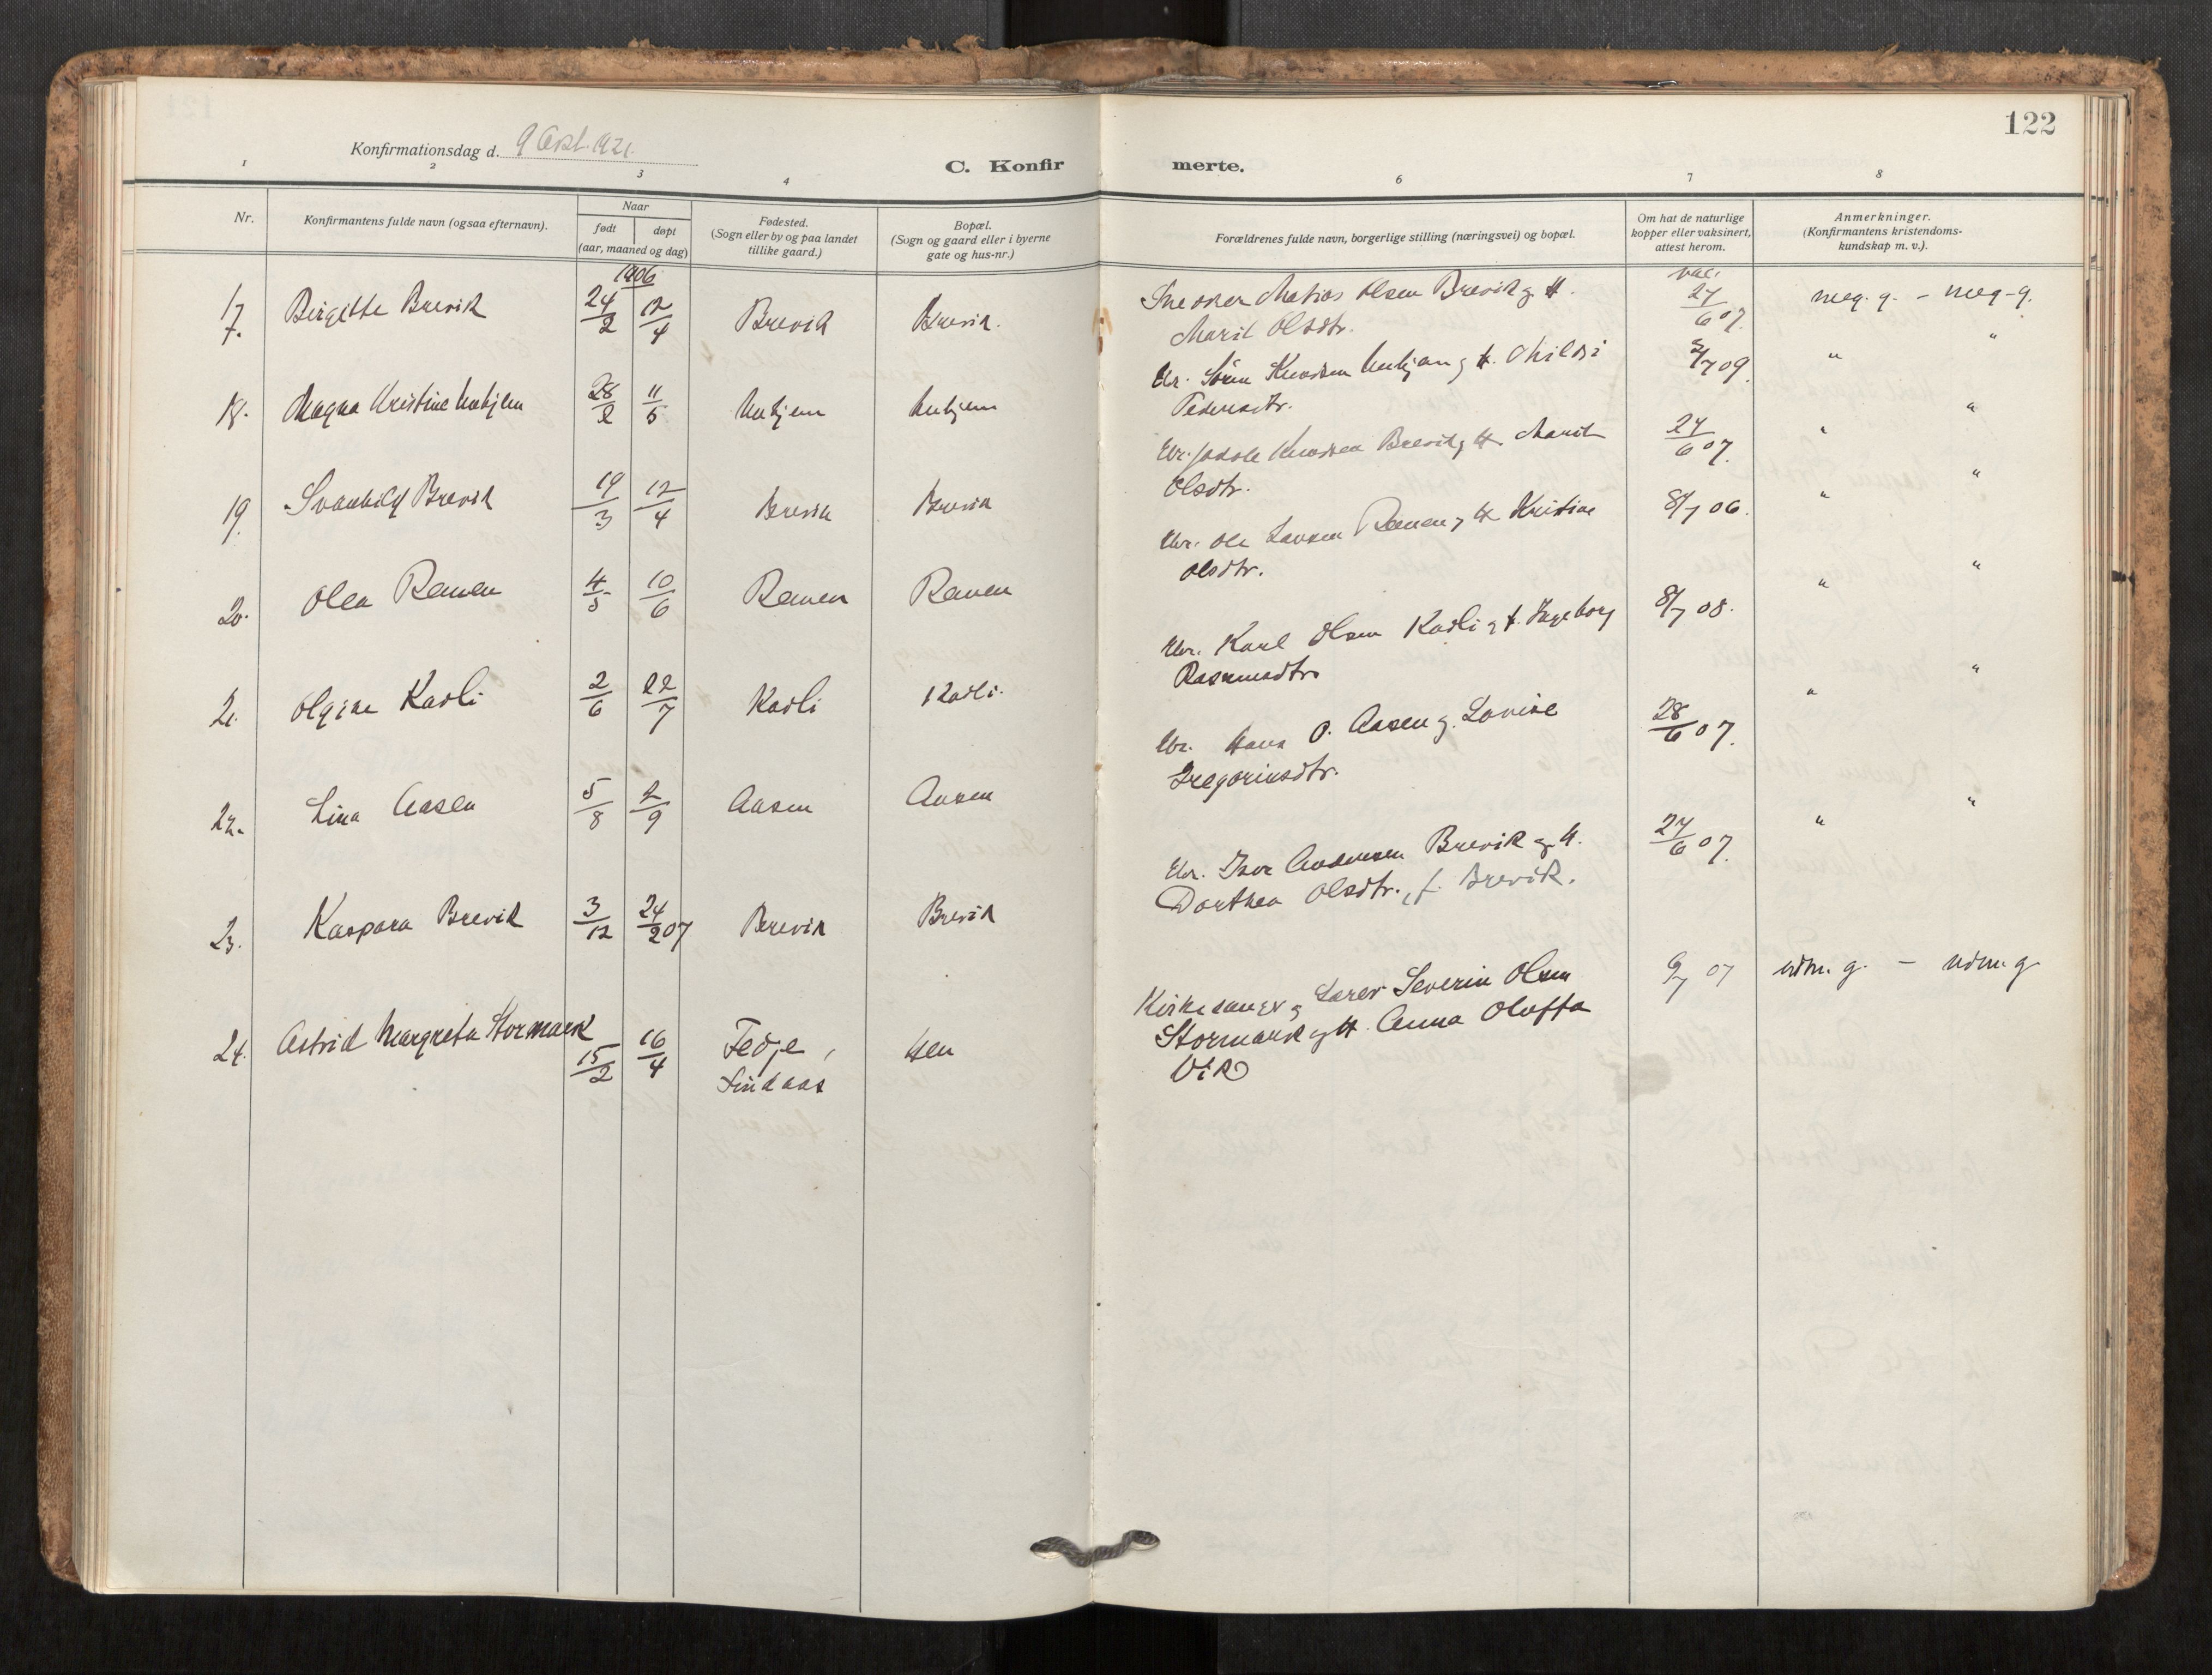 122
Konfirmationsdag d. 9 Okt. 1921.
C. Konfirmerte.
1 2 3 4 6 7 8
Nr.
Konfirmantens fulde navn (ogsaa efternavn).
Naar
født døpt
(aar, maaned og dag)
Fødested.
(Sogn eller by og paa landet
tillike gaard.)
Bopæl.
(Sogn og gaard eller i byerne
gate og hus-nr.)
Forældrenes fulde navn, borgerlige stilling (næringsvei) og bopæl.
Om hat de naturlige
kopper eller vaksinert,
attest herom.
Anmerkninger.
(Konfirmantens kristendoms-
kundskap m. v.).
1906
vac.
17. Birgitte Brevik 24/2 12/4 Brevik Brevik. Snedker Matias Olsen Brevik og H. 24/6 07. meg. g. - meg. g.
Marit Olsdtr.
18. Magna Kristine 28/2 11/5 Søren Knudsen og H. /7 09. " "
Pedersdtr.
19. Svanhild Brevik 19/3 12/4 Brevik Brevik Knudsen Brevik og H. Marit 24/6 07. " "
Olsdtr.
20. Olea Remen 4/5 10/6 Remen Remen Ole Larsen Remen og H. Kristine 8/7 06. " "
Olsdtr.
21. Olgine Kasli 2/6 22/7 Kasli Kasli. Karl Olsen Kasli og H. Ingeborg 8/7 08. " "
Rasmusdtr.
22. Lina Aasen 5/8 2/9 Aasen Aasen Hans O. Aasen og Lovise 28/6 07. " "
Gregoriusdtr.
23. Kaspara Brevik 3/12 24/2 07 Brevik Brevik Iver Andersen Brevik og H. 24/6 07. " "
Dorthea Olsdtr., f. Brevik.
24. Astrid Margreta Stormark 15/2 16/4 Fedje, Hen Kirkesanger og Lærer Severin Olsen /7 07 udm. g. - udm. g.
Lindaas Stormark og H. Anna Oluffa
Vik